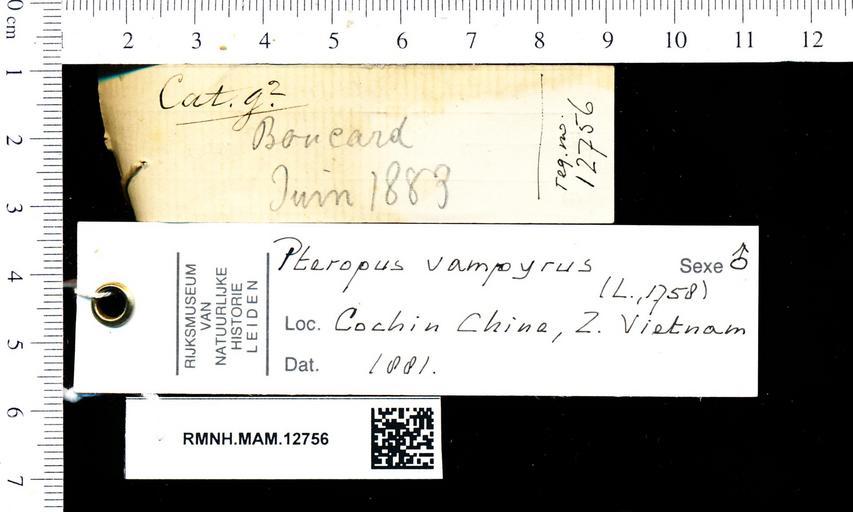 0 cm
2 3 4 5 6 7 8 9 10 11 12
1
2
3
4
5
6
7
Cat. g?
Boucard
Juin 1883
reg. no.
12756
RIJKSMUSEUM
VAN
NATUURLIJKE
HISTORIE
LEIDEN
Pteropus vampyrus Sexe ♂
(L., 1758)
Loc. Cochin China, Z. Vietnam
Dat. 1881.
RMNH.MAM.12756